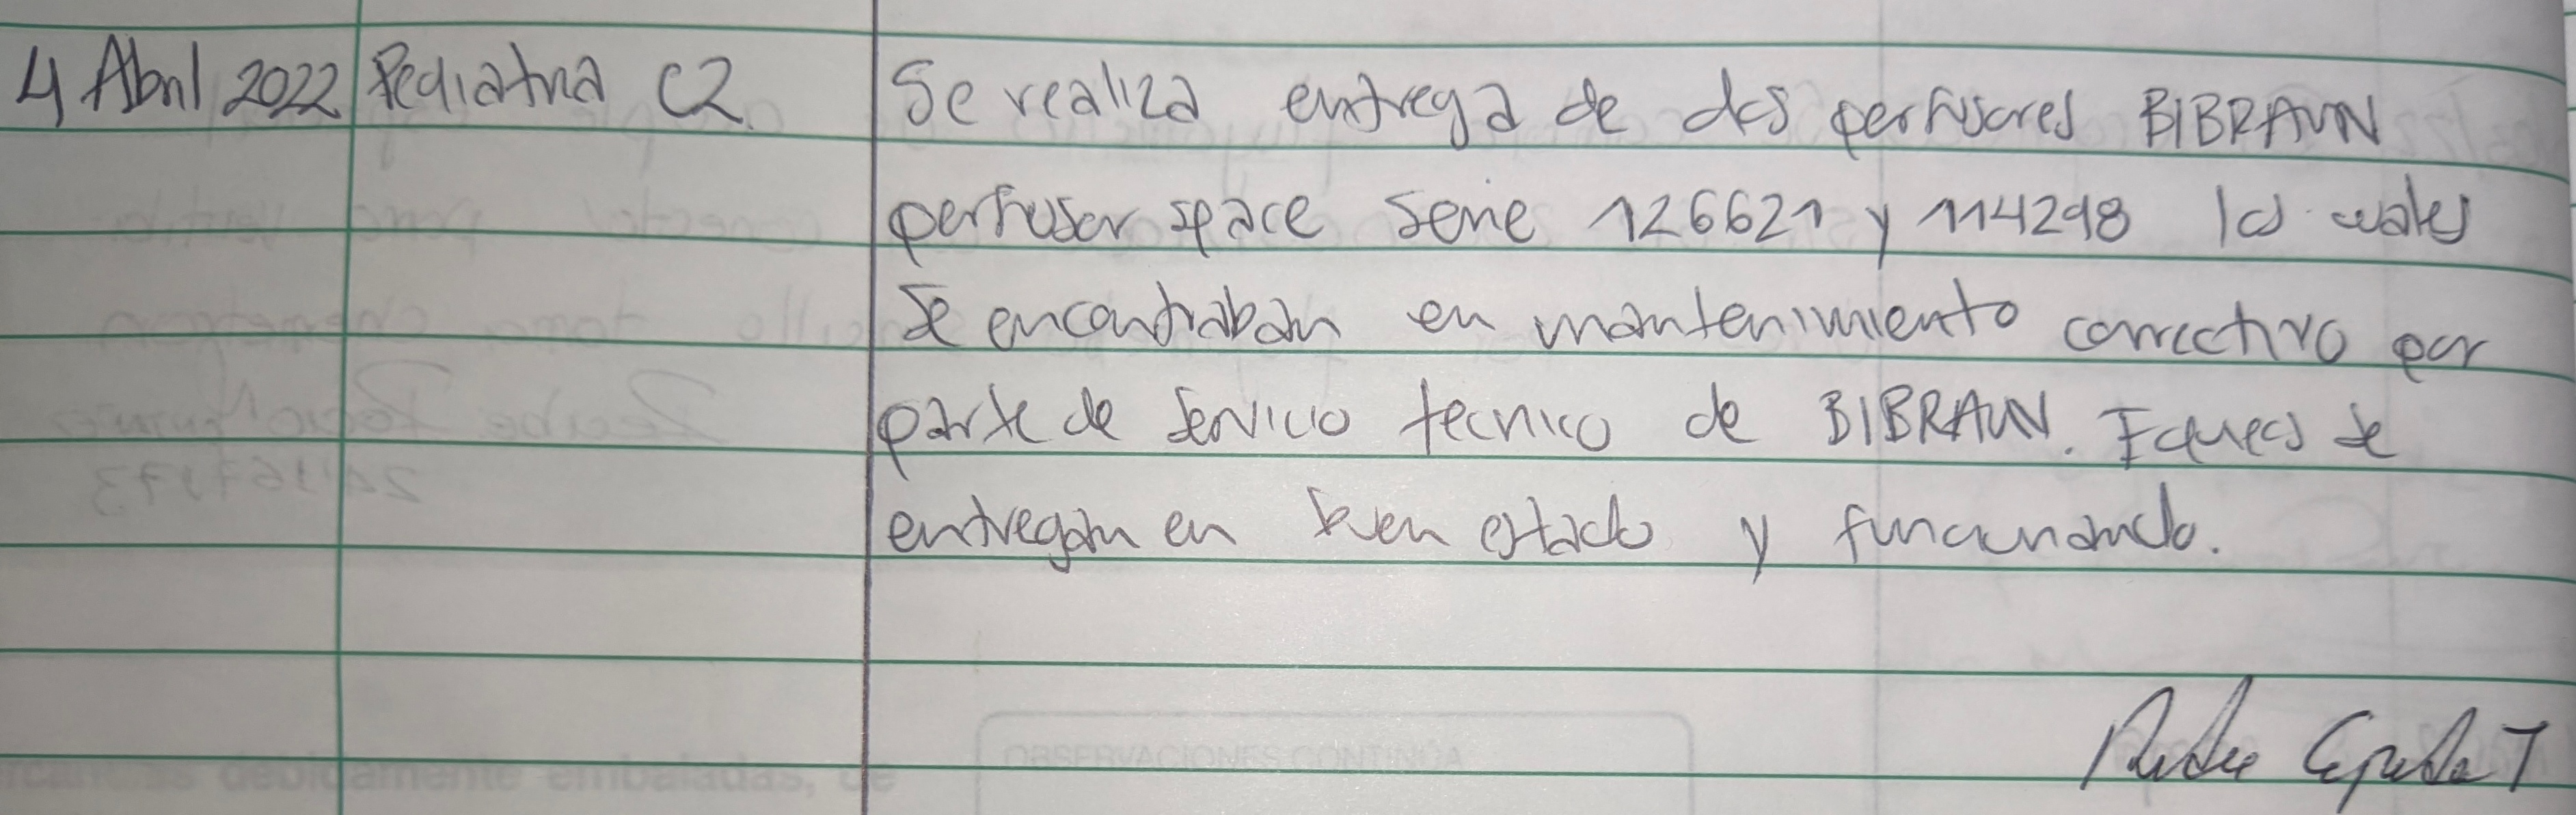 4 Abril 2022 Pediatria C2. Se realiza entrega de dos perfusores BIBRAUN
perfusor space serie 126621 y 114298 los cuales
se encontraban en mantenimiento correctivo por
parte de servicio tecnico de BIBRAUN. Equipos se
entregan en buen estado y funcionando.
OBSERVACIONES CONTINÚA
debidamente embaladas, de